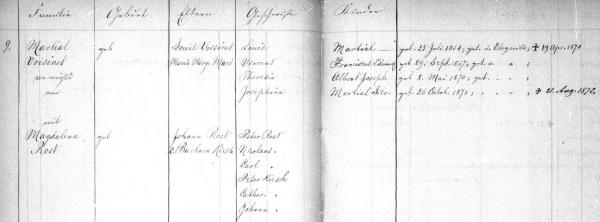 Familie Geburt Eltern Geschwister Kinder
9. Martial geb Louis Voisinet Louis Martial — geb. 23 Juli 1864, get. in Cleysville, ✝ 19 Apr. 1870
Voisinet Maria Marg. Mari Vincent Franciscus Eduard geb 29. Sept. 1867, " " "
vermählt Theresia Albert Joseph geb 8. Mai 1870, get. " "
am Josephina Martial Filo. geb 26 Octob. 1871, " " " ✝ 21 Aug. 1872.
mit
Magdalena geb Johann Rost Peter Rost
Rost & Barbara Kirsch Nicolaus "
Carl "
Peter Kirsch
Cathar. "
Johann "